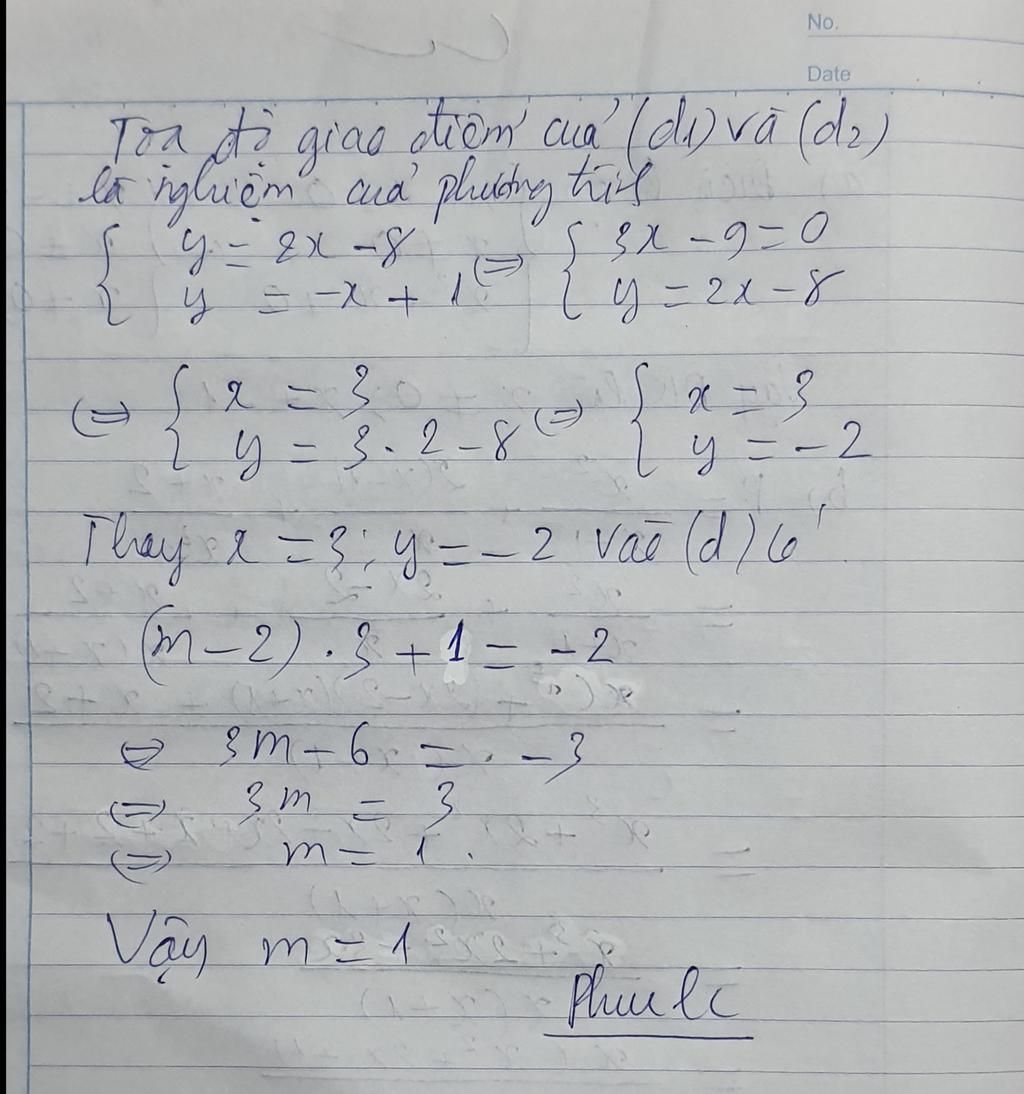 No.
Date
Toạ độ giao điểm của (d1) và (d2)
là nghiệm của phương trình
{ y = 2x - 8 <=> { 3x - 9 = 0
{ y = -x + 1 { y = 2x - 8
<=> { x = 3 <=> { x = 3
{ y = 3 . 2 - 8 { y = -2
Thay x = 3 ; y = -2 vào (d) có
(m - 2) . 3 + 1 = -2
<=> 3m - 6 = -3
<=> 3m = 3
<=> m = 1 .
Vậy m = 1